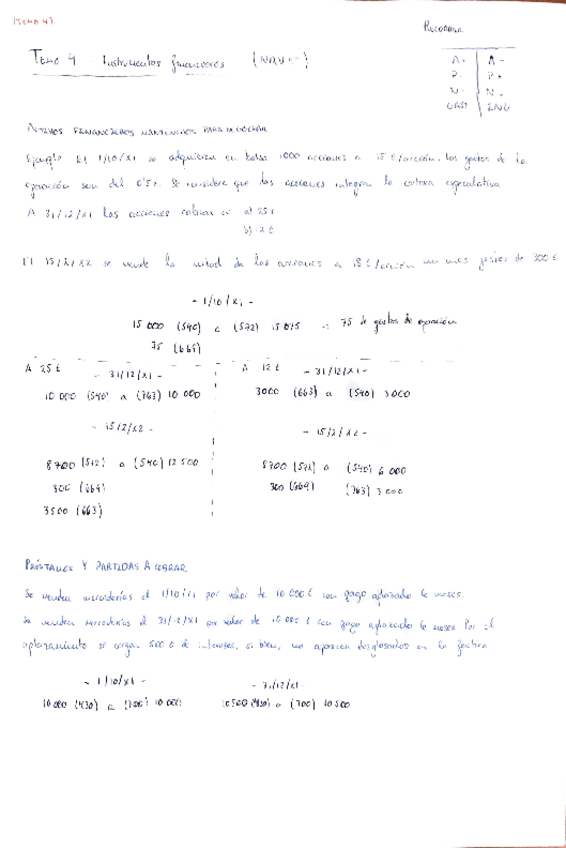 (TEMA 4)
RECORDAR
Tema 4 Instrumentos financieros (NRV
A+ | A-
P- | P+
N- | N+
GAST | ING
ACTIVOS FINANCIEROS MANTENIDOS PARA NEGOCIAR
Ejemplo El 1/10/X1 se adquieren en bolsa 1000 acciones a 15 €/acción. los gastos de la
operación son del 0'5%. Se considera que las acciones integran la cartera especulativa
A 31/12/X1 las acciones cotizan a: a) 25 €
b) 12 €
El 15/2/X2 se vende la mitad de las acciones a 18 €/acción con unos gastos de 300 €
- 1/10/X1 -
15 000 (540) a (572) 15 075 75 de gastos de operación
75 (669)
A 25 € - 31/12/X1 -
10 000 (540) a (763) 10 000
- 15/2/X2 -
8700 (572) a (540) 12 500
300 (669)
3500 (663)
A 12 € - 31/12/X1 -
3000 (663) a (540) 3000
- 15/2/X2 -
8700 (572) a (540) 6 000
300 (669) (763) 3 000
PRÉSTAMOS Y PARTIDAS A COBRAR
Se venden mercaderías el 1/10/X1 por valor de 10 000 € con pago aplazado 6 meses.
Se venden mercaderías el 31/12/X1 por valor de 10 000 € con pago aplazado 6 meses Por el
aplazamiento se cargan 500 € de intereses, si bien, no aparecen desglosados en la factura
- 1/10/X1 -
10 000 (430) a (700) 10 000
- 31/12/X1 -
10 500 (430) a (700) 10 500